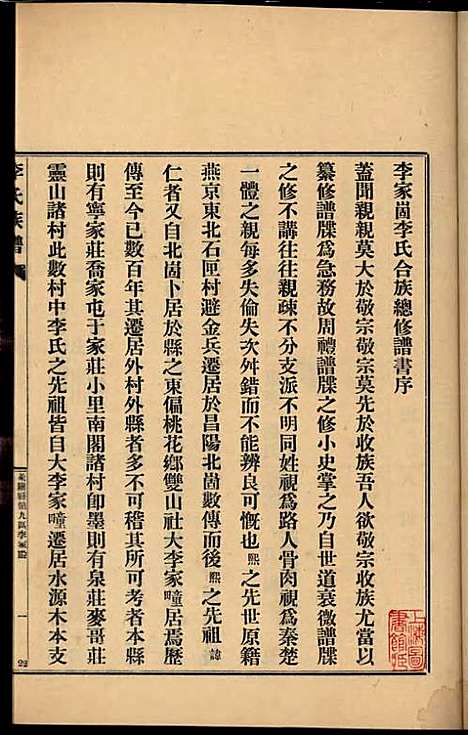 李家崮李氏合族總修譜書序
蓋聞親親莫大於敬宗敬宗莫先於收族吾人欲敬宗收族尤當以
纂修譜牒爲急務故周禮譜牒之修小史掌之乃自世道衰微譜牒
之修不講往往親疎不分支派不明同姓視爲路人骨肉視爲秦楚
一體之親每多失倫失次舛錯而不能辨良可慨也熙之先世原籍
燕京東北石匣村避金兵遷居於昌陽北崮數傳而後熙之先祖諱
仁者又自北崮卜居於縣之東偏桃花鄉雙山社大李家疃居焉歷
傳至今已數百年其遷居外村外縣者多不可稽其所可考者本縣
則有寧家莊喬家屯于家莊小里南閣諸村卽墨則有泉莊麥哥莊
靈山諸村此數村中李氏之先祖皆自大李家疃遷居水源木本支
李氏族譜
一
上海圖書館藏